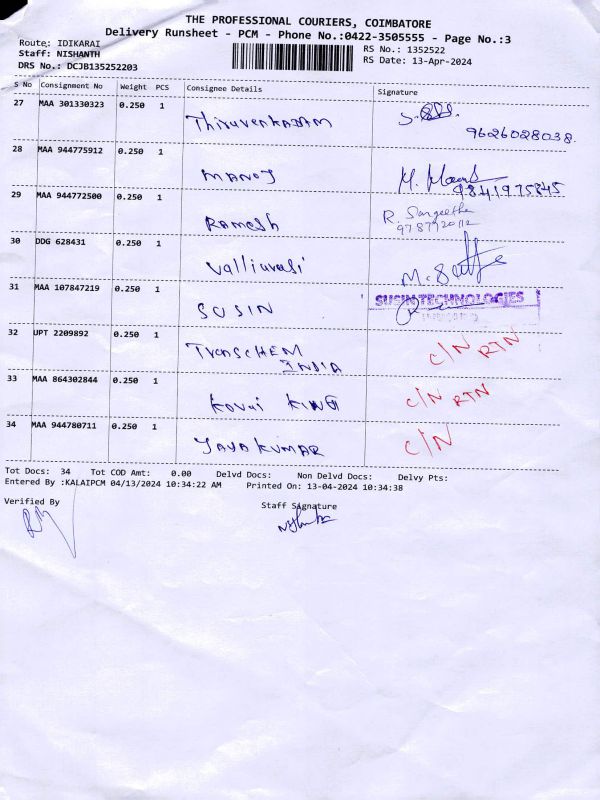 THE PROFESSIONAL COURIERS, COIMBATORE
Delivery Runsheet - PCM - Phone No.:0422-3505555 - Page No.:3
Route: IDIKARAI
Staff: NISHANTH
DRS No.: DCJB135252203
RS No.: 1352522
RS Date: 13-Apr-2024
S No Consignment No Weight PCS Consignee Details Signature
27 MAA 301330323 0.250 1
Thiruvenkadam
9626028038.
28 MAA 944775912 0.250 1
MANOJ
9841975845
29 MAA 944772500 0.250 1
Ramesh
R. Sangeetha
30 DDG 628431 0.250 1
Valliavasi
31 MAA 107847219 0.250 1
SUSIN
SUSIN TECHNOLOGIES
32 UPT 2209892 0.250 1
TranSCHEM
INDIA
C/N RTN
33 MAA 864302844 0.250 1
Kovai KING
C/N RTN
34 MAA 944780711 0.250 1
JAYAKUMAR
C/N
Tot Docs: 34 Tot COD Amt: 0.00 Delvd Docs: Non Delvd Docs: Delvy Pts:
Entered By :KALAIPCM 04/13/2024 10:34:22 AM Printed On: 13-04-2024 10:34:38
Verified By
Staff Signature